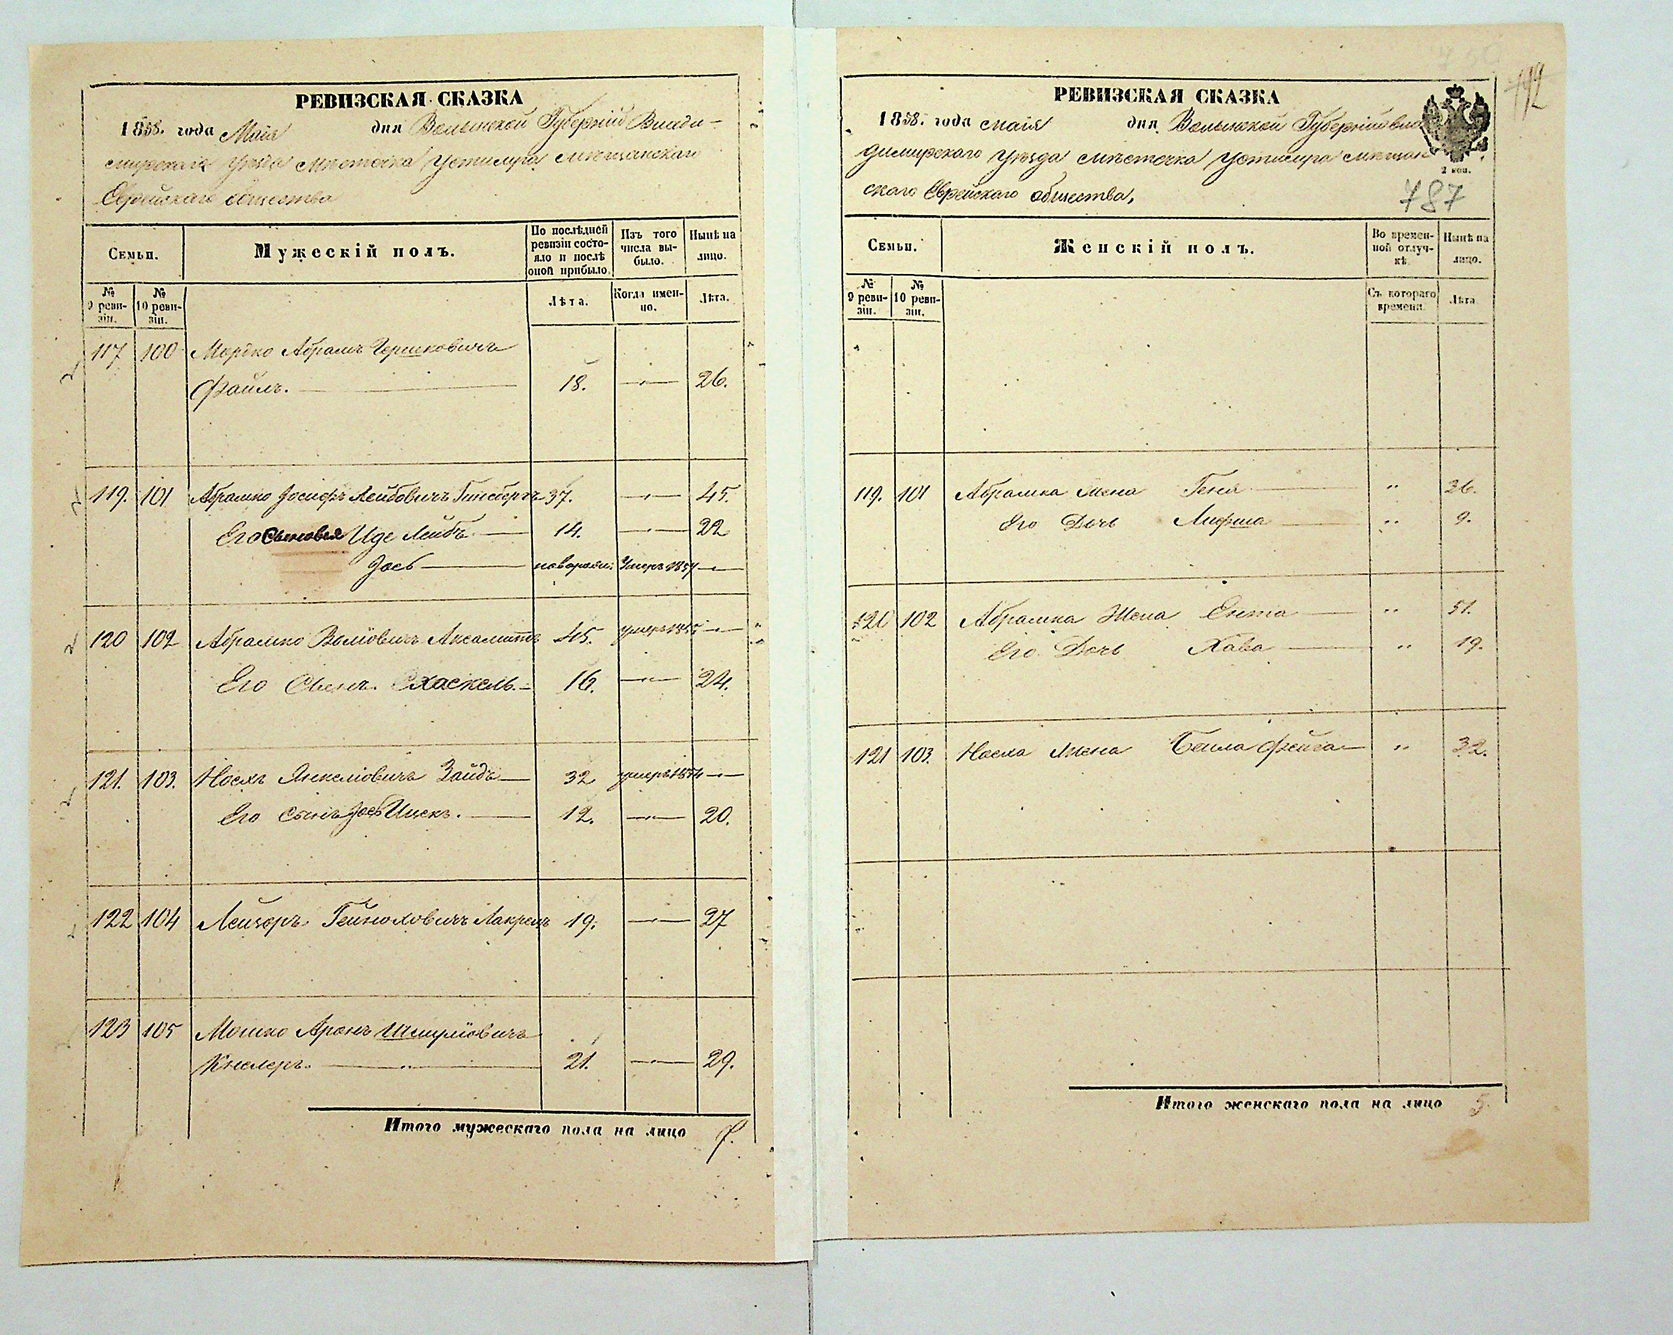 РЕВИЗСКАЯ СКАЗКА
1858. года Мая дня Волынской Губерніи Влади-
мирскаго уѣзда мѣстечка Устилуга мѣщанскаго
Еврейскаго общества
Семьи.
Мужескій полъ.
По послѣдней ревизіи состояло и послѣ оной прибыло.
Изъ того числа выбыло.
Нынѣ на лицо.
№ 9 ревизіи.
№ 10 ревизіи.
Лѣта.
Когда именно.
Лѣта.
117 100 Мордко Абрамъ Гершковичъ
Файлъ. 18. 26.
119. 101 Абрамко Іосифъ Лейбовичъ Гинсбергъ 37. 45.
Его Сыновья Иде Лейбъ 14. 22
Іосъ новорожд: Умеръ 1857
120 102 Абрамко Волковичъ Аксамитъ 45. умеръ 1855
Его Сынъ Хаскель 16. 24.
121. 103. Носхъ Янкеліовичъ Зайдъ 32 умеръ 1854
Его Сынъ Іосъ Ицекъ. 12. 20.
122 104 Лейзоръ Гейноховичъ 19. 27
123 105 Мошко Аронъ Шмулїовичъ
Кнелеръ. 21. 29.
Итого мужескаго пола на лицо 7.
РЕВИЗСКАЯ СКАЗКА
1858. года мая дня Волынской Губерніи Вла
димирскаго уѣзда мѣстечка Устилуга мѣщан
скаго Еврейскаго общества,
2 коп.
192
787
Семьи.
Женскій полъ.
Во временной отлучкѣ.
Нынѣ на лицо.
№ 9 ревизіи.
№ 10 ревизіи.
Съ котораго времени.
Лѣта
119. 101 Абрамка жена Геня " 36.
Его Дочь " 9.
120 102 Абрамка Жена Ента " 51.
Его Дочь Хава " 19.
121 103. Носха жена Бейла Фейга " 32.
Итого женскаго пола на лицо 5.